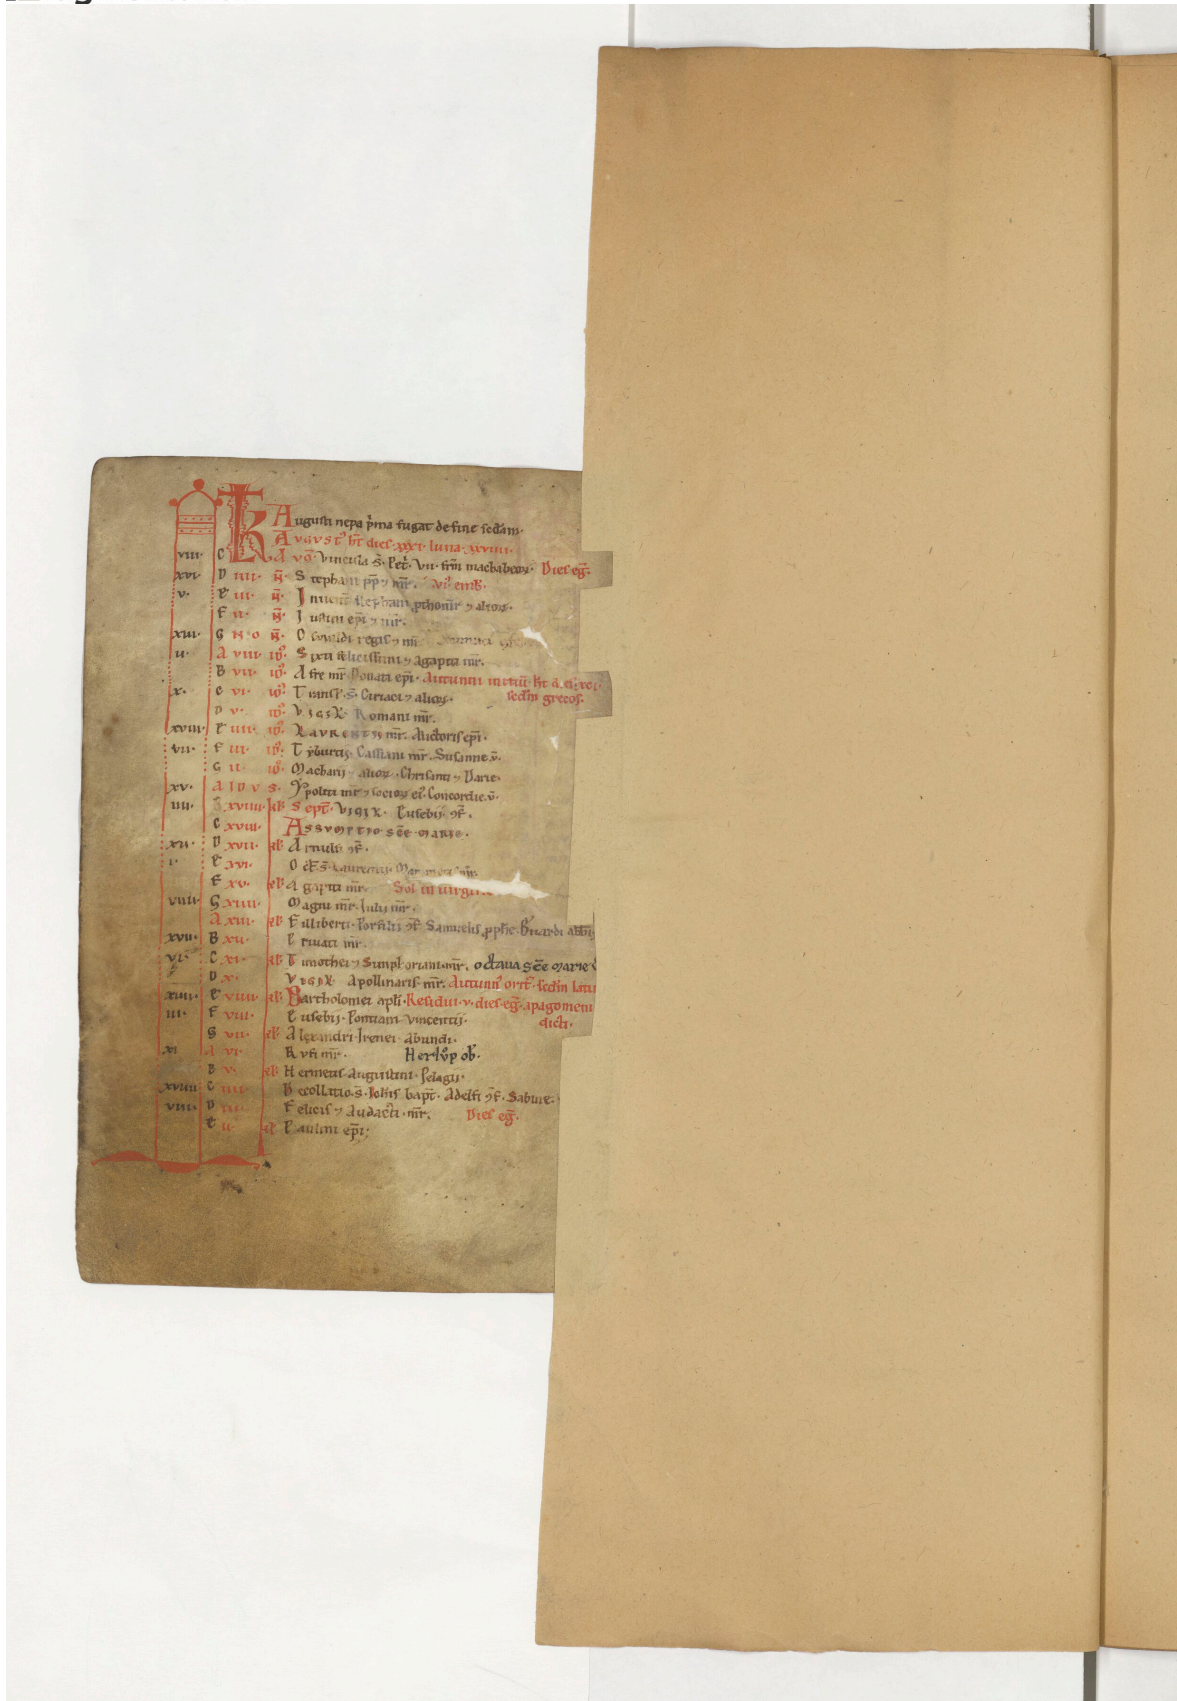 KL Augusti nepa p̄ma fugat de fine sc̄dam.
Augustꝰ ht̄ dies xxxi luna xxviiii.
viii. C Auḡ. Vincula S. Pet̄. Vii. fr̄m machabeoꝝ. Dies eḡ.
xvi. D iiii. N̄. Stephani pp̄ ⁊ mr̄. Vi. emb̄.
v. E iii. N̄. Inuent̄ Stephani pthom̄r ⁊ alioꝝ.
F ii. N̄. Iustini ep̄i ⁊ mr̄.
xiii. G NO N̄. Oswaldi regis ⁊ mr̄
ii. A viii. idꝰ Sixti felicissimi ⁊ Agapiti mr̄.
B vii. idꝰ Afre mr̄ Donati ep̄i. Autumni initiū ht̄
x. C vi. idꝰ Transl̄. S. Ciriaci ⁊ alioꝝ. sc̄dm grecos.
D v. idꝰ VIGIL. Romani mr̄.
xviii. E iiii. idꝰ LAURENTII mr̄. Auctoris ep̄i.
vii. F iii. idꝰ Tyburtii. Cassiani mr̄. Susanne v̄.
G ii. idꝰ Macharii ⁊ alioꝝ. Chrisanti ⁊ Darie.
xv. A IDVS. Ypoliti mr̄ ⁊ socioꝝ eiꝰ. Concordie v̄.
iiii. xviiii. kl̄ Sept̄. VIGIL. Eusebii. ꝯf̄.
C xviii. ASSUMPTIO SC̄E MARIE.
xii. D xvii. kl̄ Arnulfi ꝯf̄.
i. E xvi. Oct̄. S. Laurentii. mr̄.
F xv. kl̄ Agapiti mr̄. Sol in uirgine
viiii. G xiiii. Magni mr̄. Iulii mr̄.
A xiii. kl̄ Filliberti. Porfilii ꝯf̄. Samuelis pph̄e. Bn̄ardi abb̄is
xvii. B xii. Priuati mr̄.
vi. C xi. kl̄ Timothei ⁊ Simphoriani mr̄. octaua sc̄e marie
D x. VIGIL Apollinaris mr̄. Autumnꝰ orit̄. sc̄dm latin
xiiii. E viiii. kl̄ Bartholomei apl̄i. Residui v. dies eḡ. apagomeni
iii. F viii. Eusebii. Pontiani Vincentii. dicti.
G vii. kl̄ Alexandri. Irenei Abundi.
xi A vi. Rufi mr̄. ob̄.
B v. kl̄ Hermetis. Augustini. Pelagii.
xviiii C iiii. Decollatio. S. Ioh̄is bapt̄. Adelfi ꝯf̄. Sabine.
viii. D iii. Felicis ⁊ Audacti. mr̄. Dies eḡ.
E ii. kl̄ Paulini ep̄i;